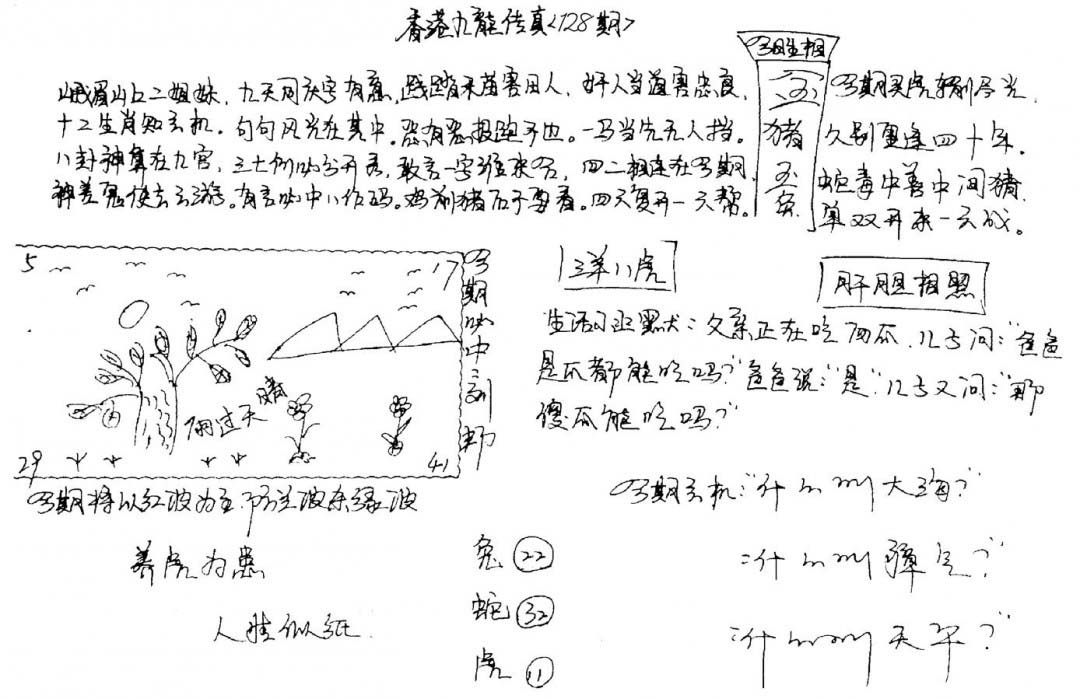 香港九龙传真<128期>
今期生相
峨眉山上二姐妹，九天同庆字有意，践踏禾苗害田人，奸人当道害忠良，
十二生肖知玄机。句句风光在其中。恶有恶报跑不也。一马当先无人挡。
八卦神算在九宫，三七 必分开看，敢言一字 来 ，四二相连在今期，
神差鬼使去云游。有言必中八作码。鸡前猪后子要看。四天复开一天帮。
猪
兔
今期灵虎
久别重逢四十年。
蛇毒牛善中间猪
单双开来一玄战。
5
17
29
41
雨过天晴
今期必中三 那
三羊八虎
肝胆相照
生活小幽默：父亲正在吃西瓜，儿子问：“爸爸
是瓜都能吃吗？”爸爸说：“是”儿子又问：“那
傻瓜能吃吗？”
今期将以红波为主，防兰波杀绿波
养虎为患
人生似纸
兔 22
蛇 32
虎 11
今期玄机：“什么叫大海？”
：“什么叫 气？”
：“什么叫天平？”